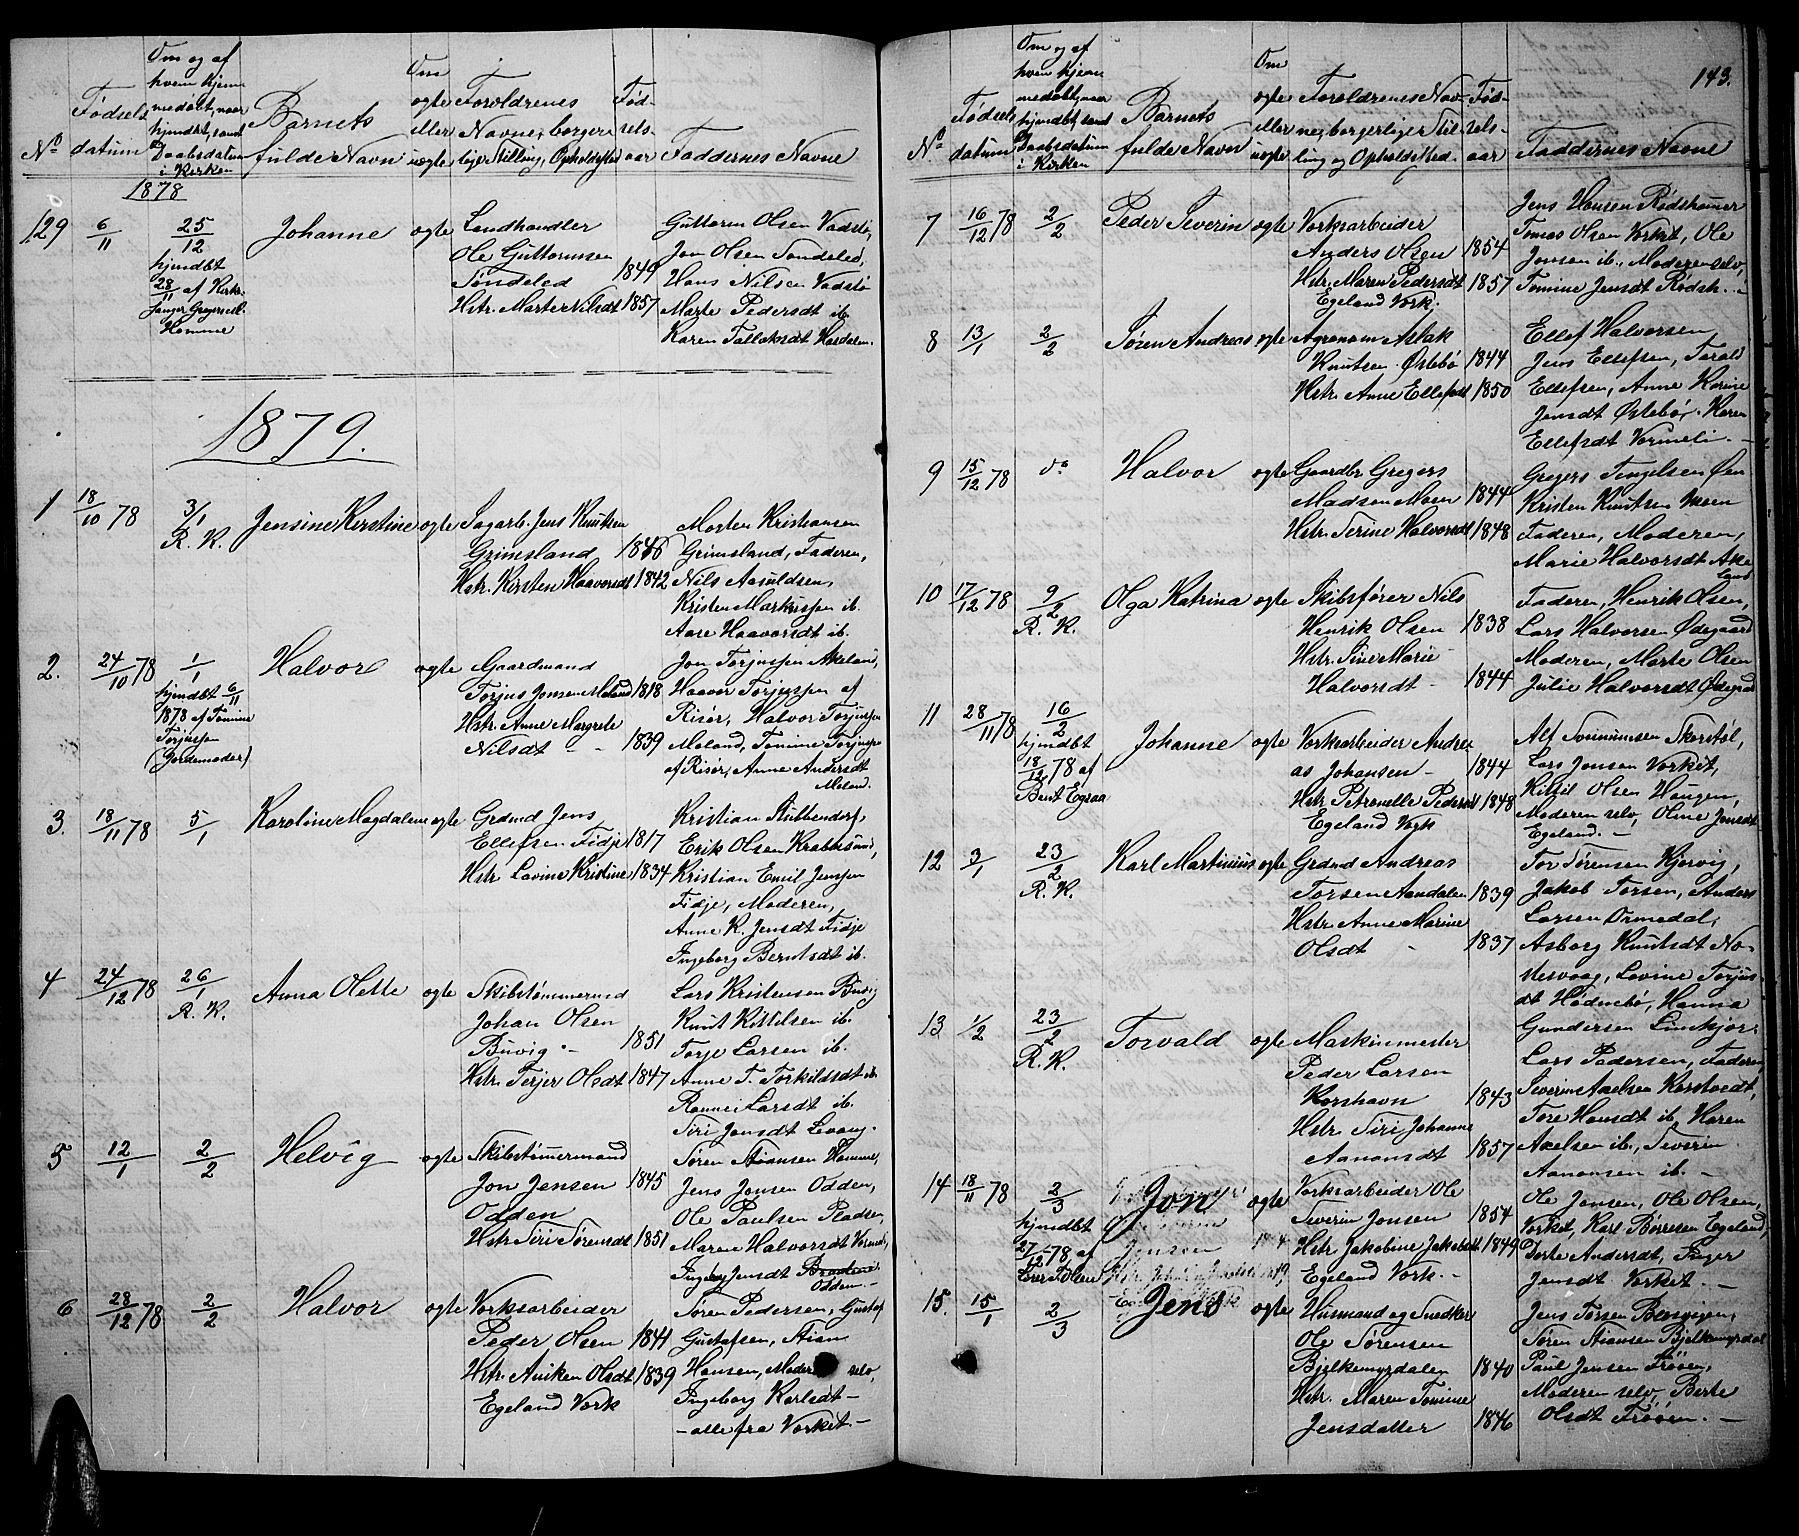 143.
Nº
Fødsels
datum
Om og af
hvem hjem
medøbt, naar
hjemdøbt, samt
Daabsdatum
i Kirken
Barnets
fulde Navn
Om
ægte
eller
uægte
Forældrenes
Navne, borger
lige Stilling, Opholdssted
Fød-
sels-
aar
Faddernes Navne
1878
129 6/11 25/12
hjemdbt
28/11 af Kirke-
sanger Gregersen
Hommer
Johanne ægte
Landhandler
Ole Guttormsen
Søndeled 1849
Hstr. Marte Nilsdt 1857
Guttorm Olsen Vadstø,
Jon Olsen Søndeled,
Hans Nilsen Vadstø
Marte Pedersdt ib.
Karen Tallaksdt Hasdalen.
1879.
1 18/10 78 3/1
R. K.
Jensine Kerstine ægte
Sagarb. Jens Knutsen
Grimsland 1846
Hstr. Kirsten Haavorsdt 1842
Morten Kristiansen
Grimsland, Faderen,
Nils Asuldsen,
Kristen Markussen ib.
Aase Haavorsdt ib.
2. 24/10 78 1/1
hjemdbt 6/11
1878 af Tomine
Torjussen
(Jordemoder)
Halvor ægte
Gaardmand
Torjus Jonsen Moland 1818
Hstr. Anne Margrete
Nilsdt - 1839
Jon Torjussen Akeland,
Haavor Torjussen af
Risør, Halvor Torjussen
Moland, Tomine Torjussen
af Risør, Anne Andersdt
Moland.
3. 18/11 78 5/1
Karoline Magdalene ægte
Grdmd Jens
Ellefsen Fidje 1817
Hstr Lovine Kristine 1834
Kristian Stubbendorf,
Erik Olsen Krabbesund,
Kristian Emil Jenssen
Fidje, Moderen,
Anne K. Jensdt Fidje
Ingeborg Berntsdt ib.
4 24/12 78 26/1
R. K.
Anna Olette ægte
Skibstømmermd
Johan Olsen
Buvig - 1851
Hstr. Terjer Olsdt 1847
Lars Kristensen Buvig
Knut Kittilsen ib.
Torje Larsen ib.
Anne T. Torkildsdt ib
Ronnei Larsdt ib.
Siri Jonsdt Levang.
5 12/1 2/2
Helvig ægte
Skibstømmermand
Jon Jensen 1845
Odden
Hstr Siri Sørensdt 1851
Søren Stiansen Homme,
Jens Jonsen Odden,
Ole Paulsen Pladsen,
Maren Halvorsdt
Ingeborg Jensdt
Odden. -
6 28/12 78 2/2
Halvor ægte
Værksarbeider
Peder Olsen 1841
Hstr. Aniken Olsdt 1839
Egeland Værk
Søren Pedersen, Gustaf
Gustafsen, Stian
Hansen, Moderen selv,
Ingeborg Karlsdt -
- alle fra Værket -
Nº
Fødsels
datum
Om og af
hvem hjem
medøbt, naar
hjemdøbt, samt
Daabsdatum
i Kirken
Barnets
fulde Navn
Om
ægte
eller
uægte
Forældrenes Nav-
ne, borgerliger Stil-
ling og Opholdssted.
Fød-
sels-
aar
Faddernes Navne
7 16/12 78 2/2
Peder Severin ægte
Værksarbeider
Anders Olsen 1854
Hstr. Maren Pedersdt 1857
Egeland Værk.
Jens Hansen Rødshamer
Tomas Olsen Værket, Ole
Jonsen ib., Moderen selv,
Tomine Jensdt Rødsh. -
8 13/1 2/2
Søren Andreas ægte
Agronom Aslak
Knutsen Østebø 1844
Hstr. Anne Ellefsdt 1850
Ellef Halvorsen
Jens Ellefsen, Torald
Ellefsen, Anne Karine
Jensdt Østebø, Karen
Ellefsdt Vormeli. -
9 15/12 78 do
Halvor ægte
Gaardbr Gregers
Madsen Moen 1844
Hstr. Serine Halvorsdt 1848
Gregers Tengelsen
Kristen Knutsen Moen
Faderen, Moderen,
Marie Halvorsdt Ake-
land
10 17/12 78 9/2
R. K.
Olga Katrina ægte
Skibsfører Nils
Henrik Olsen 1838
Hstr. Sine Marie
Halvorsdt - 1844
Faderen, Henrik Olsen,
Lars Halvorsen Ødegaard
Moderen, Marte Olsen
Julie Halvorsdt Ødegaard
11 28/11 78 16/2
hjemdbt
18/12 78 af
Bent Egraa
Johanne ægte
Værksarbeider Andre
as Johansen - 1844
Hstr Petronelle Pedersdt 1848
Egeland Værk
Alf Skorstøl,
Lars Jensen Værket,
Kittil Olsen Haugen,
Moderen selv, Oline Jonsdt
Egeland. -
12 3/1 23/2
R. K.
Karl Martinius ægte
Grdmd Andreas
Torsen Aandalen 1839
Hstr. Anne Marine
Olsdt 1837
Tor Sørensen Kjørvig,
Jakob Torsen, Anders
Larsen Ormedal,
Asborg Knutsdt No-
Mesvaag, Lovine Torjus-
dt Hødnebø, Hanna
Gundersen
13 1/2 23/2
R. K.
Torvald ægte
Maskinmester
Peder Larsen
Korshavn 1843
Hstr. Siri Johanne
Aanonsdt 1857
Lars Pedersen, Faderen,
Severin Axelsen Korstvedt,
Tore Hansdt ib. Karen
Axelsen ib., Severin
Aanonsen ib. -
14 18/11 78 2/3
hjemdbt
27/12 78 af
Jon ægte
Værksarbeider Ole
Severin Jonsen 1854
Hstr Jakobine Jakobsdt 1849
Egeland Værk. -
Ole Jensen, Ole Olsen,
Værket, Karl Børresen Egeland,
Berte Andersdt, Inger
Jensdt Værket. -
15. 15/1 2/3
Jens ægte
Husmand og Snedker
Ole Sørensen
Bjelkemyrdalen 1840
Hstr. Maren Tomine
Jensdatter 1846
Jens Torsen Bosvigen,
Søren Stiansen Bjelkemyrdal
Paul Jensen Frøen,
Moderen selv, Berte
Olsdt Frøen. -